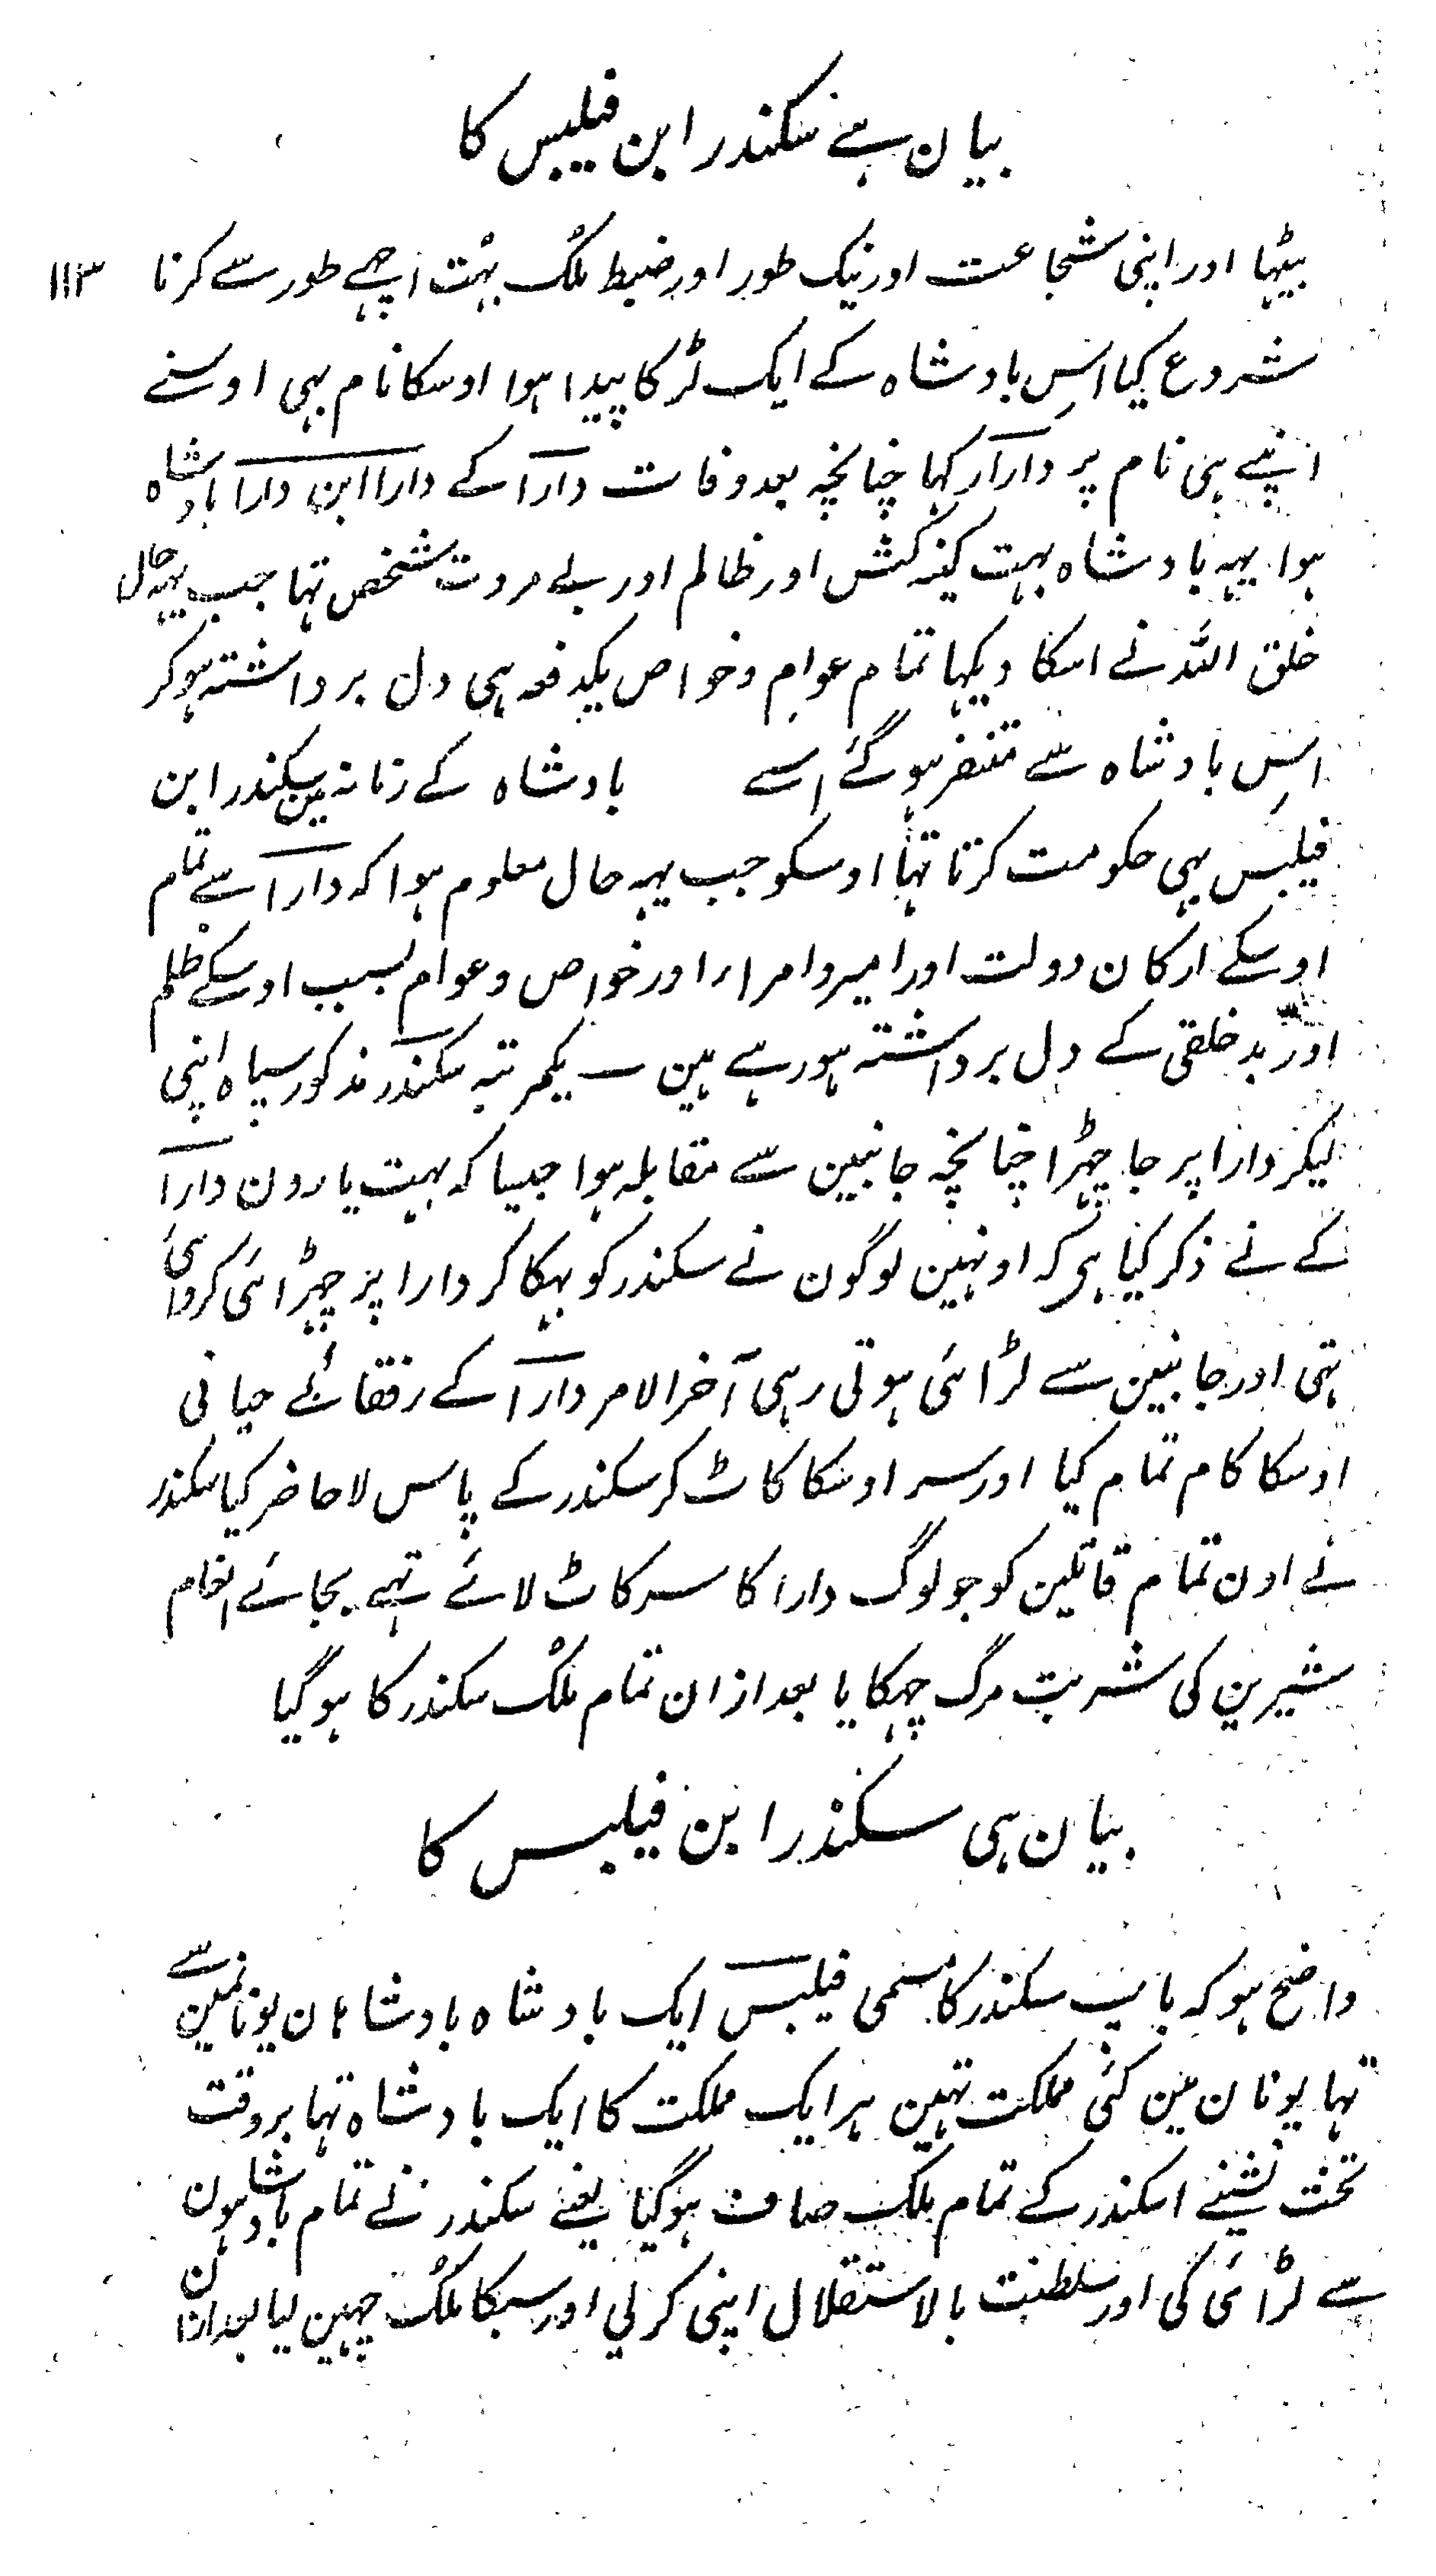 بیان ہے سکندر ابن فیلبس کا
۱۱۳
بیٹہا اور اپنی شجاعت اور نیک طور اور ضبط ملک بہت اچہے طور سے کرنا
شروع کیا اس بادشاہ کے ایک لڑکا پیدا ہوا اوسکا نام بہی اوسنے
اپنے ہی نام پر دارا رکہا چنانچہ بعد وفات دارا کے دارا ابن دارا بادشاہ
ہوا یہہ بادشاہ بہت کینہ کش اور ظالم اور بے مروت شخص تہا جب یہہ حال
خلق اللہ نے اسکا دیکہا تمام عوام و خواص یکدفعہ ہی دل برداشتہ ہوکر
اس بادشاہ سے متنفر ہوگئے اسے بادشاہ کے زمانہ مین سکندر ابن
فیلبس بہی حکومت کرتا تہا اوسکو جب یہہ حال معلوم ہوا کہ دارا سے تمام
اوسکے ارکان دولت اور امیر و امراء اور خواص و عوام بسبب اوسکے ظلم
اور بدخلقی کے دل برداشتہ ہورہے ہین یکمرتبہ سکندر مذکور سپاہ اپنی
لیکر دارا پر جا چہڑا چنانچہ جانبین سے مقابلہ ہوا جیسا کہ بہت یارون دارا
کے نے ذکر کیا ہی کہ اونہین لوگون نے سکندر کو بہکا کر دارا پر چہڑائی کروائی
تہی اور جانبین سے لڑائی ہوتی رہی آخرالامر دارا کے رفقائے جانی
اوسکا کام تمام کیا اور سر اوسکا کاٹ کر سکندر کے پاس لا حاضر کیا سکندر
نے اون تمام قاتلین کو جو لوگ دارا کا سر کاٹ لائے تہے بجائے انعام
شیرین کی شربت مرگ چہکایا بعد ازان تمام ملک سکندر کا ہوگیا
بیان ہی سکندر ابن فیلبس کا
واضح ہو کہ باپ سکندر کا مسمی فیلبس ایک بادشاہ بادشاہان یونانمین سے
تہا یونان مین کئی مملکت تہین ہر ایک مملکت کا ایک بادشاہ تہا بروقت
تخت نشینے اسکندر کے تمام ملک صاف ہوگیا یعنے سکندر نے تمام بادشاہون
سے لڑائی کی اور سلطنت بالاستقلال اپنی کرلی اور سبکا ملک چہین لیا بعد ازان